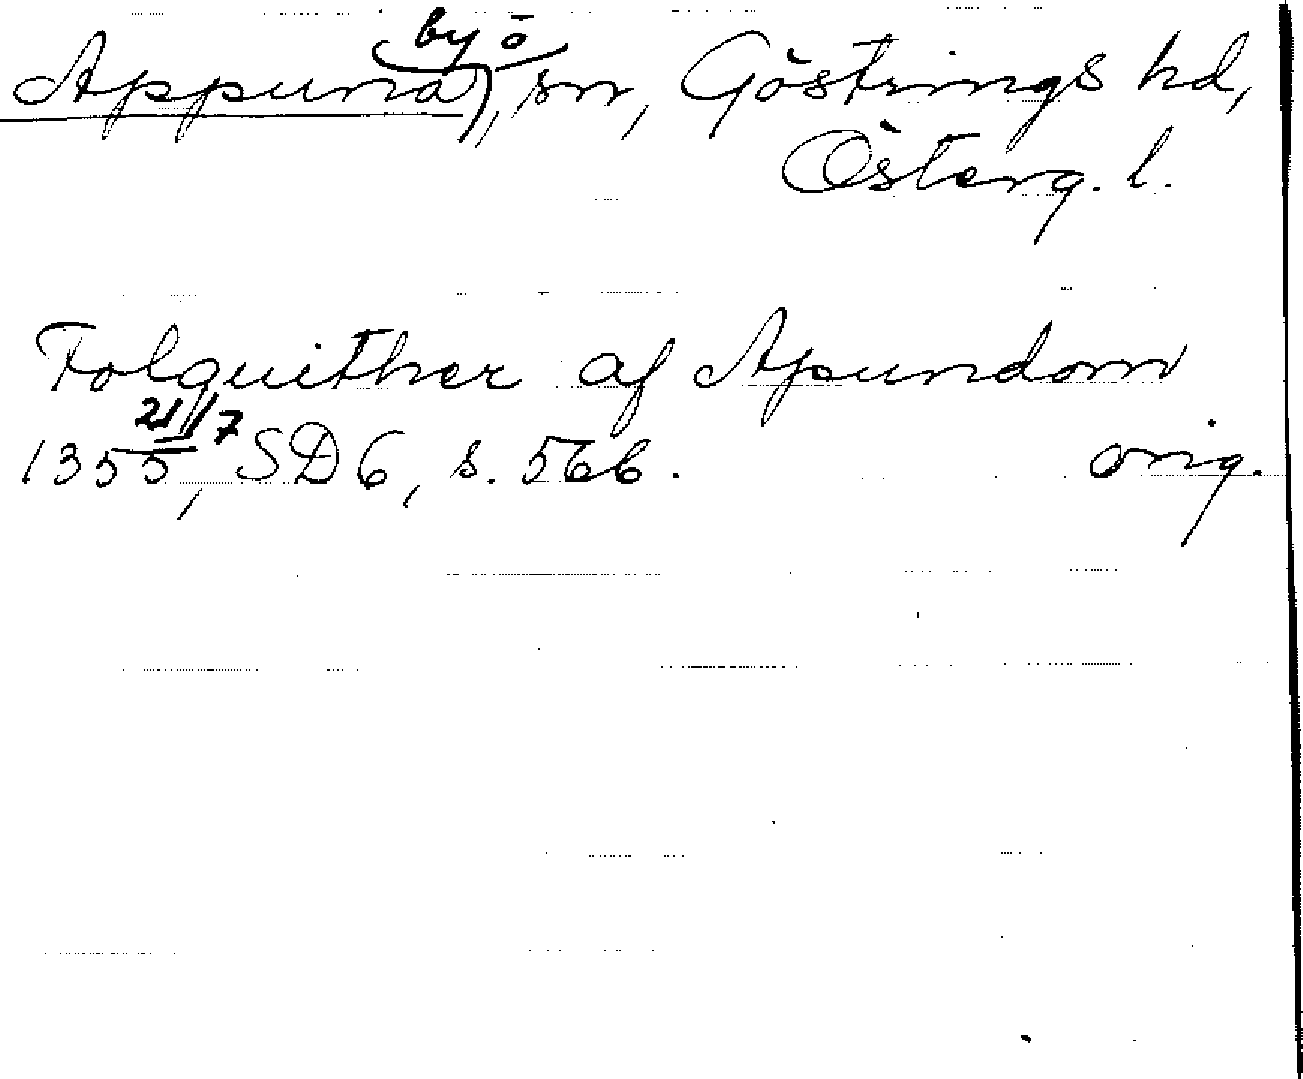 Appuna, by ō sn, Göstrings hd,
Österg. l.
Folquither af Apundom
1355 21/7, SD 6, s. 566. orig.